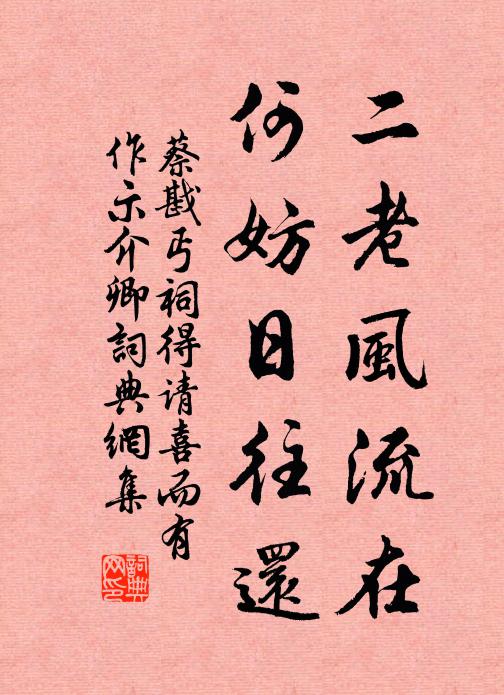 二老風流在
何妨日往還
蔡戡丐祠得请喜而有
作示介卿詞典網集
詞典网印